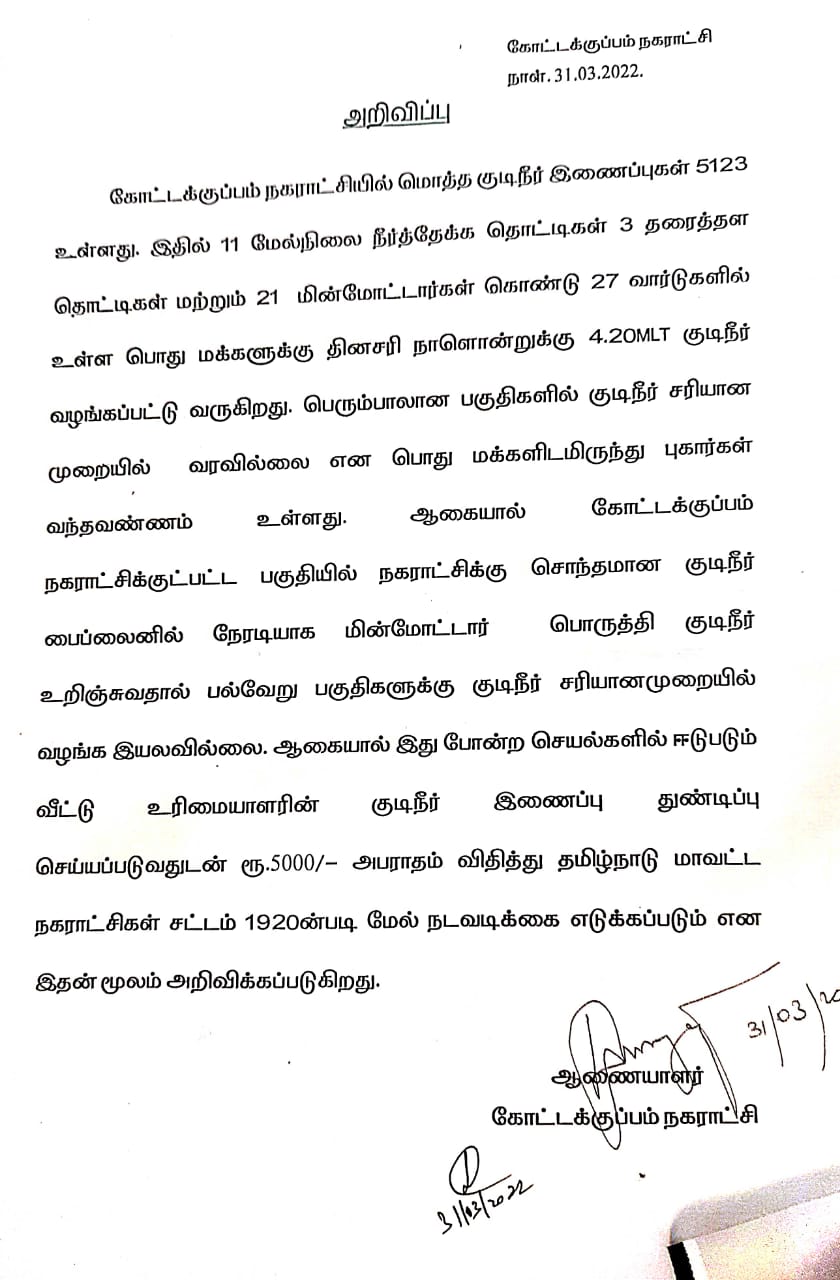 கோட்டக்குப்பம் நகராட்சி
நாள். 31.03.2022.
அறிவிப்பு
கோட்டக்குப்பம் நகராட்சியில் மொத்த குடிநீர் இணைப்புகள் 5123
உள்ளது. இதில் 11 மேல்நிலை நீர்த்தேக்க தொட்டிகள் 3 தரைத்தள
தொட்டிகள் மற்றும் 21 மின்மோட்டார்கள் கொண்டு 27 வார்டுகளில்
உள்ள பொது மக்களுக்கு தினசரி நாளொன்றுக்கு 4.20MLT குடிநீர்
வழங்கப்பட்டு வருகிறது. பெரும்பாலான பகுதிகளில் குடிநீர் சரியான
முறையில் வரவில்லை என பொது மக்களிடமிருந்து புகார்கள்
வந்தவண்ணம் உள்ளது. ஆகையால் கோட்டக்குப்பம்
நகராட்சிக்குட்பட்ட பகுதியில் நகராட்சிக்கு சொந்தமான குடிநீர்
பைப்லைனில் நேரடியாக மின்மோட்டார் பொருத்தி குடிநீர்
உறிஞ்சுவதால் பல்வேறு பகுதிகளுக்கு குடிநீர் சரியானமுறையில்
வழங்க இயலவில்லை. ஆகையால் இது போன்ற செயல்களில் ஈடுபடும்
வீட்டு உரிமையாளரின் குடிநீர் இணைப்பு துண்டிப்பு
செய்யப்படுவதுடன் ரூ.5000/– அபராதம் விதித்து தமிழ்நாடு மாவட்ட
நகராட்சிகள் சட்டம் 1920ன்படி மேல் நடவடிக்கை எடுக்கப்படும் என
இதன் மூலம் அறிவிக்கப்படுகிறது.
31/03/20
ஆணையாளர்
கோட்டக்குப்பம் நகராட்சி
31/03/2022